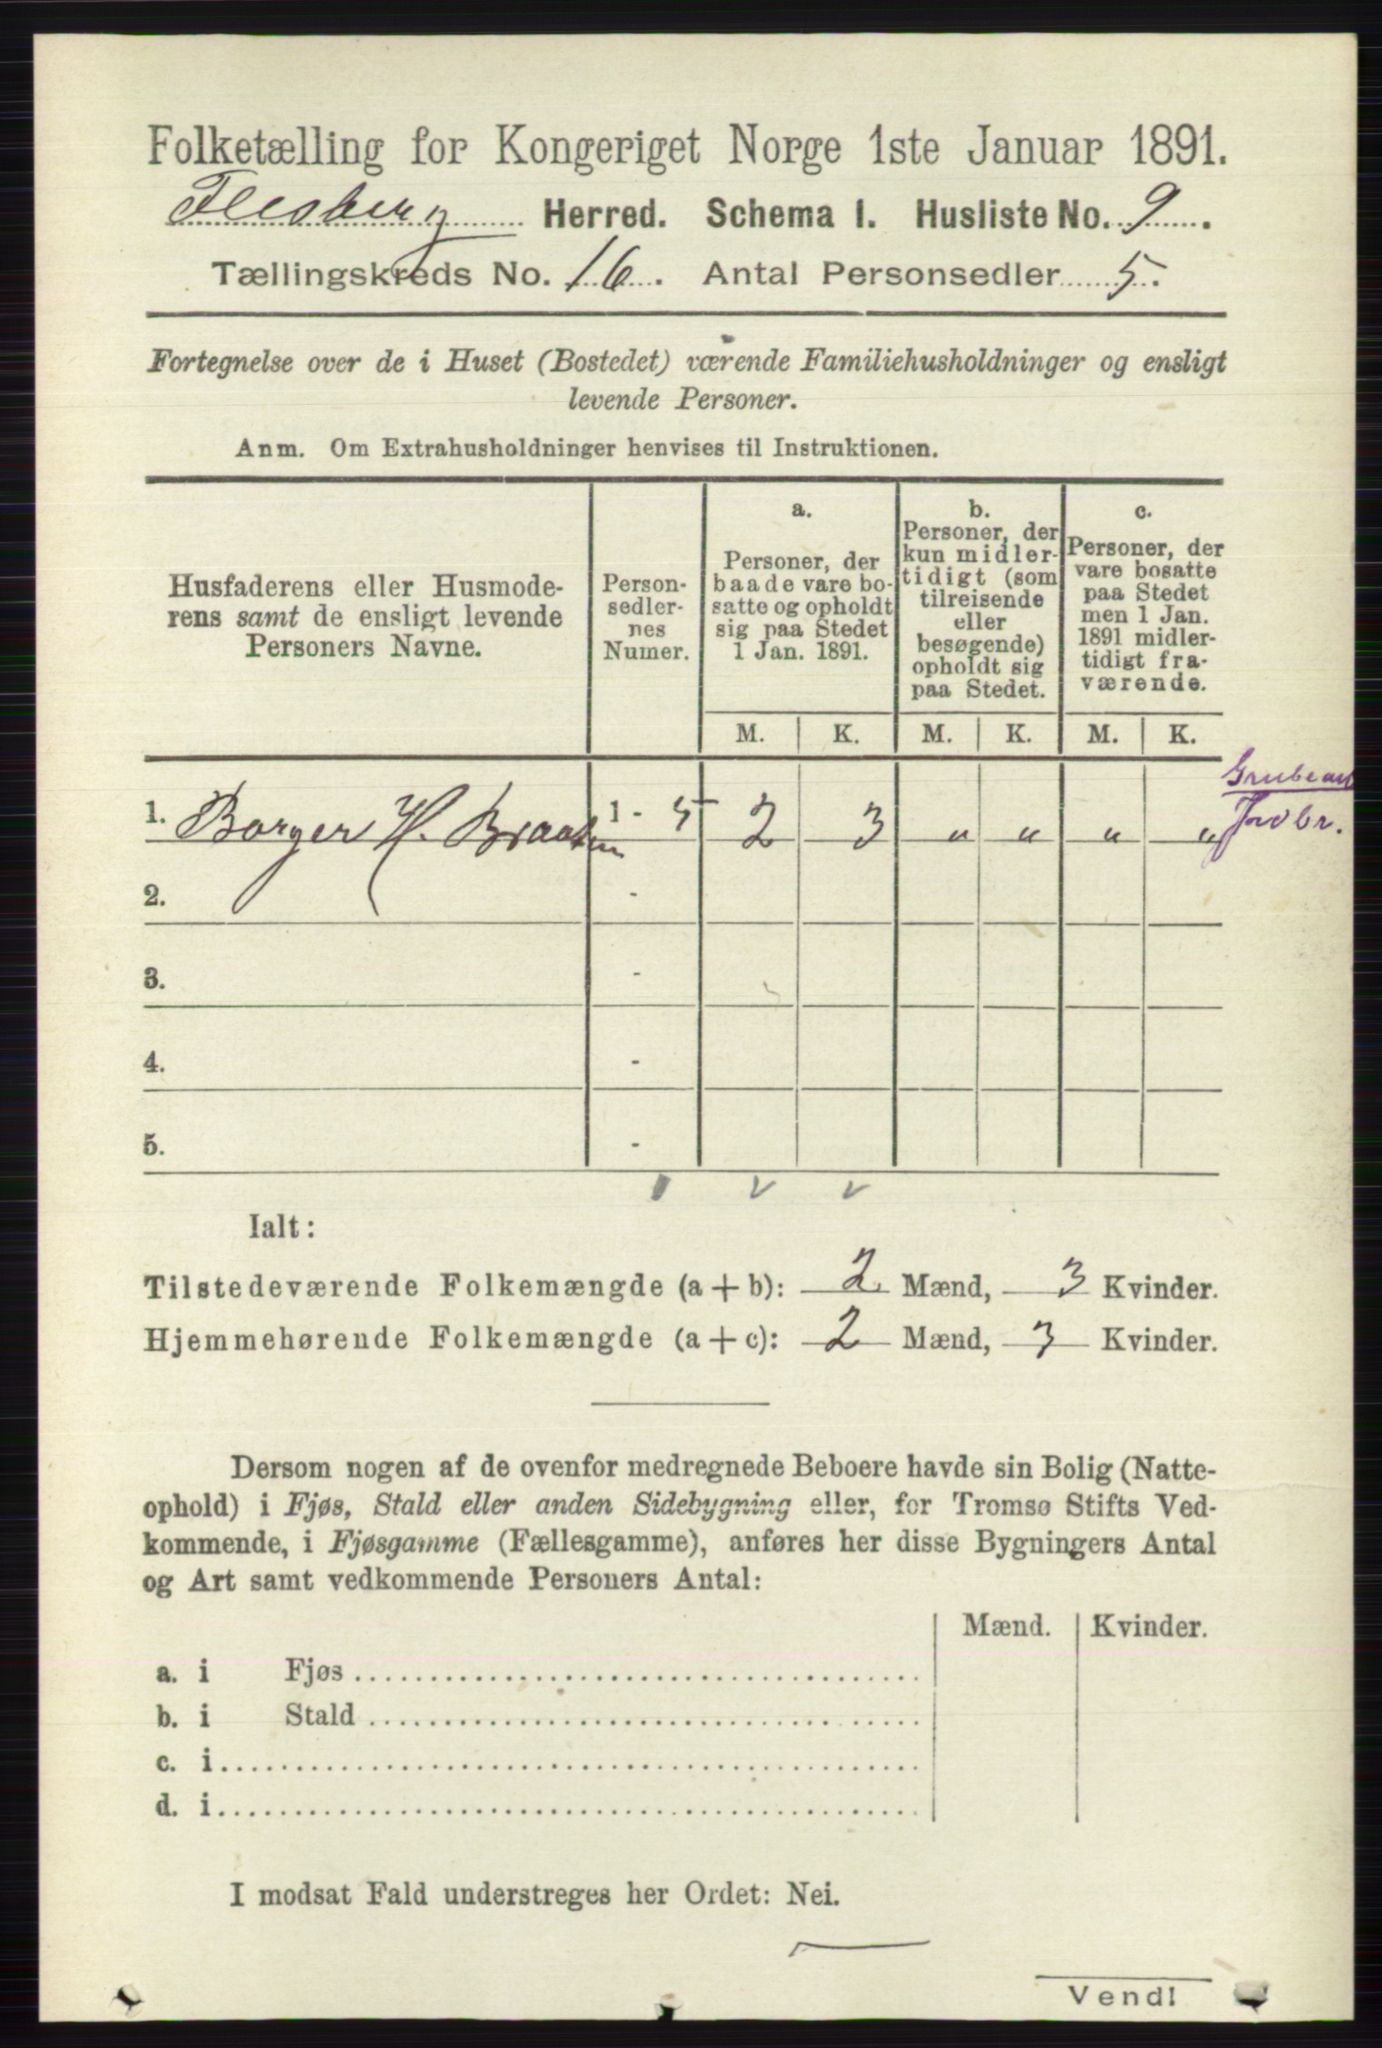 Folketælling for Kongeriget Norge 1ste Januar 1891.
Flesberg Herred. Schema 1. Husliste No. 9.
Tællingskreds No. 16. Antal Personsedler 5.
Fortegnelse over de i Huset (Bostedet) værende Familiehusholdninger og ensligt
levende Personer.
Anm. Om Extrahusholdninger henvises til Instruktionen.
Husfaderens eller Husmode-
rens samt de ensligt levende
Personers Navne.
Person-
sedler-
nes
Numer.
a.
Personer, der
baade vare bo-
satte og opholdt
sig paa Stedet
1 Jan. 1891.
b.
Personer, der
kun midler-
tidigt (som
tilreisende
eller
besøgende)
opholdt sig
paa Stedet.
c.
Personer, der
vare bosatte
paa Stedet
men 1 Jan.
1891 midler-
tidigt fra-
værende.
M. K. M. K. M. K.
1. Borger H. Braaten 1 - 5 2 3 " " " "
2. -
3. -
4. -
5. -
Ialt:
Tilstedeværende Folkemængde (a + b): 2 Mænd, 3 Kvinder.
Hjemmehørende Folkemængde (a + c): 2 Mænd, 3 Kvinder.
Dersom nogen af de ovenfor medregnede Beboere havde sin Bolig (Natte-
ophold) i Fjøs, Stald eller anden Sidebygning eller, for Tromsø Stifts Ved-
kommende, i Fjøsgamme (Fællesgamme), anføres her disse Bygningers Antal
og Art samt vedkommende Personers Antal:
Mænd. Kvinder.
a. i Fjøs
b. i Stald
c. i
d. i
I modsat Fald understreges her Ordet: Nei.
Vend!